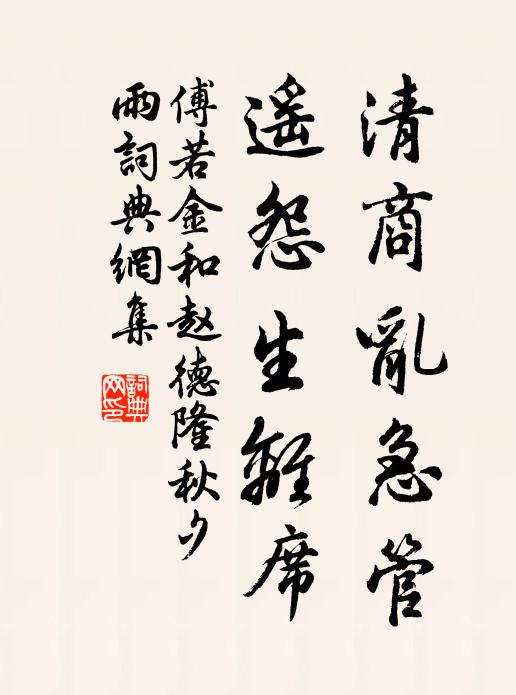 清商亂急管
遥怨生離席
傅若金和赵德隆秋夕
雨詞典網集
詞典网印